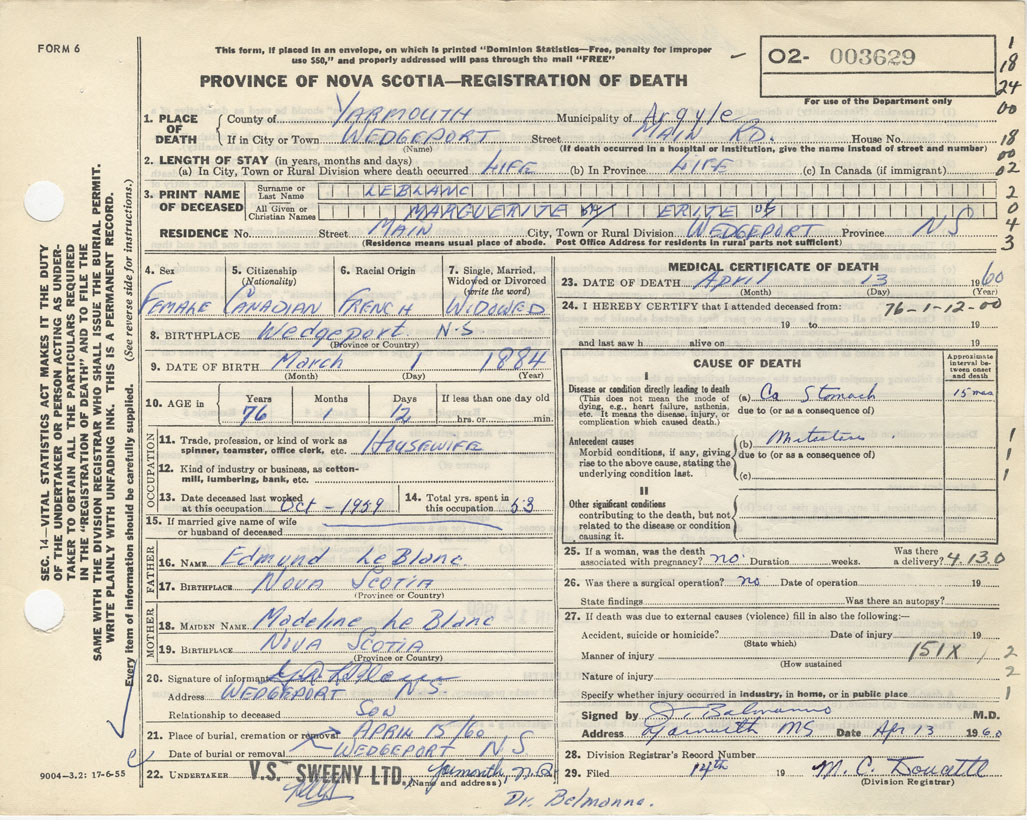 FORM 6
This form, if placed in an envelope, on which is printed "Dominion Statistics—Free, penalty for improper
use $50," and properly addressed will pass through the mail "FREE"
PROVINCE OF NOVA SCOTIA—REGISTRATION OF DEATH
O2- 003629
For use of the Department only
1
18
24
00
18
00
02
2
0
4
3
1. PLACE OF DEATH
County of YARMOUTH Municipality of Argyle
If in City or Town WEDGEPORT Street MAIN RD. House No.
(Name) (If death occurred in a hospital or institution, give the name instead of street and number)
2. LENGTH OF STAY (in years, months and days)
(a) In City, Town or Rural Division where death occurred LIFE (b) In Province LIFE (c) In Canada (if immigrant)
3. PRINT NAME OF DECEASED
Surname or Last Name LEBLANC
All Given or Christian Names MARGUERITE ERITE
RESIDENCE No. Street MAIN City, Town or Rural Division WEDGEPORT Province NS
(Residence means usual place of abode. Post Office Address for residents in rural parts not sufficient)
4. Sex
FEMALE
5. Citizenship
(Nationality)
CANADIAN
6. Racial Origin
FRENCH
7. Single, Married,
Widowed or Divorced
(write the word)
WIDOWED
8. BIRTHPLACE Wedgeport N.S
(Province or Country)
9. DATE OF BIRTH March 1 1884
(Month) (Day) (Year)
10. AGE in
Years Months Days If less than one day old
76 1 12 hrs. or min.
OCCUPATION
11. Trade, profession, or kind of work as
spinner, teamster, office clerk, etc. HOUSEWIFE
12. Kind of industry or business, as cotton-
mill, lumbering, bank, etc.
13. Date deceased last worked
at this occupation Oct - 1959
14. Total yrs. spent in
this occupation 53
15. If married give name of wife
or husband of deceased
FATHER
16. NAME Edmund Le Blanc
17. BIRTHPLACE NOVA SCOTIA
(Province or Country)
MOTHER
18. MAIDEN NAME Madeline Le Blanc
19. BIRTHPLACE NOVA SCOTIA
(Province or Country)
20. Signature of informant
Address WEDGEPORT N.S.
Relationship to deceased SON
21. Place of burial, cremation or removal APRIL 15/60
Date of burial or removal WEDGEPORT N S
22. UNDERTAKER V.S. SWEENY LTD., Yarmouth, N.S.
(Name and address)
MEDICAL CERTIFICATE OF DEATH
23. DATE OF DEATH April 13 1960
(Month) (Day) (Year)
24. I HEREBY CERTIFY that I attended deceased from: 76-1-12-00
19 to 19
and last saw h alive on 19
CAUSE OF DEATH
Approximate
interval be-
tween onset
and death
I
Disease or condition directly leading to death
(This does not mean the mode of
dying, e.g., heart failure, asthenia,
etc. It means the disease, injury, or
complication which caused death.)
(a) Ca Stomach 15 mos
due to (or as a consequence of)
Antecedent causes
Morbid conditions, if any, giving
rise to the above cause, stating the
underlying condition last.
(b)
due to (or as a consequence of)
(c)
1
1
II
Other significant conditions
contributing to the death, but not
related to the disease or condition
causing it.
25. If a woman, was the death
associated with pregnancy? no Duration weeks. Was there
a delivery? 4.13.0
26. Was there a surgical operation? no Date of operation 19
State findings Was there an autopsy?
27. If death was due to external causes (violence) fill in also the following:—
Accident, suicide or homicide? Date of injury 19
(State which)
Manner of injury 151X 2
(How sustained)
Nature of injury 2
Specify whether injury occurred in industry, in home, or in public place 1
Signed by J. Balmanno M.D.
Address Yarmouth NS Date Apr 13 1960
28. Division Registrar's Record Number
29. Filed 14th 19 M. C. Doucette
(Division Registrar)
Dr. Balmanno.
9004-3.2: 17-6-55
SEC. 14—VITAL STATISTICS ACT MAKES IT THE DUTY
OF THE UNDERTAKER OR PERSON ACTING AS UNDER-
TAKER TO OBTAIN ALL THE PARTICULARS REQUIRED
IN THE "REGISTRATION OF DEATH" AND TO FILE THE
SAME WITH THE DIVISION REGISTRAR WHO SHALL ISSUE THE BURIAL PERMIT.
WRITE PLAINLY WITH UNFADING INK. THIS IS A PERMANENT RECORD.
Every item of information should be carefully supplied. (See reverse side for instructions.)